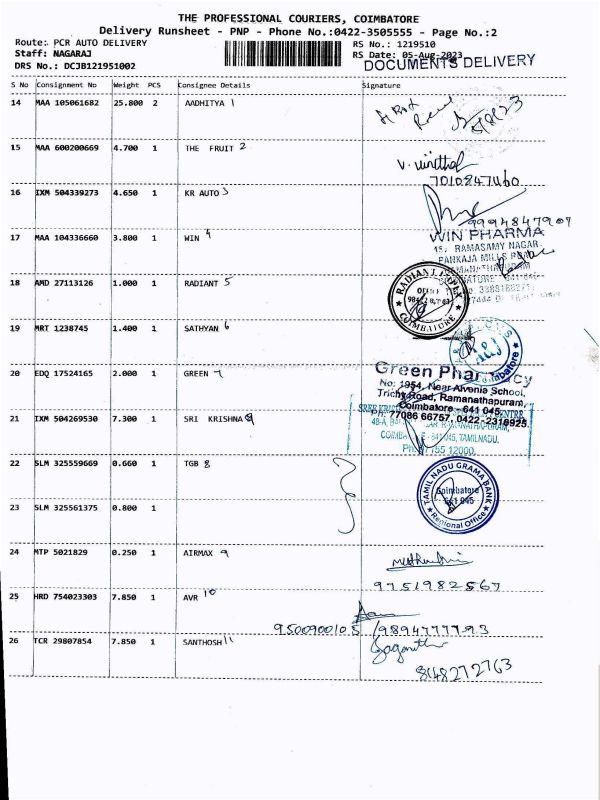 THE PROFESSIONAL COURIERS, COIMBATORE
Delivery Runsheet - PNP - Phone No.:0422-3505555 - Page No.:2
Route: PCR AUTO DELIVERY RS No.: 1219510
Staff: NAGARAJ RS Date: 05-Aug-2023
DRS No.: DCJB121951002 DOCUMENTS DELIVERY
S No Consignment No Weight PCS Consignee Details Signature
14 MAA 105061682 25.800 2 AADHITYA 1
15 MAA 600200669 4.700 1 THE FRUIT 2
7010847460
16 IXM 504339273 4.650 1 KR AUTO 3
9994847907
17 MAA 104336660 3.800 1 WIN 4
WIN PHARMA
15, RAMASAMY NAGAR
PANKAJA MILLS ROAD
18 AMD 27113126 1.000 1 RADIANT 5
COIMBATORE
19 MRT 1238745 1.400 1 SATHYAN 6
A&J
20 EDQ 17524165 2.000 1 GREEN 7
Green Pharmacy
No: 1954, Near Alvenia School,
Trichy Road, Ramanathapuram,
Coimbatore - 641 045.
Ph: 77086 66757, 0422-2318925
21 IXM 504269530 7.300 1 SRI KRISHNA 8
641 045, TAMILNADU.
22 SLM 325559669 0.660 1 TGB 8
TAMIL NADU GRAMA BANK
Coimbatore
641 045
Regional Office
23 SLM 325561375 0.800 1
24 MTP 5021829 0.250 1 AIRMAX 9
9751982567
25 HRD 754023303 7.850 1 AVR 10
9500900105 / 9894777793
26 TCR 29807854 7.850 1 SANTHOSH 11
8148272763